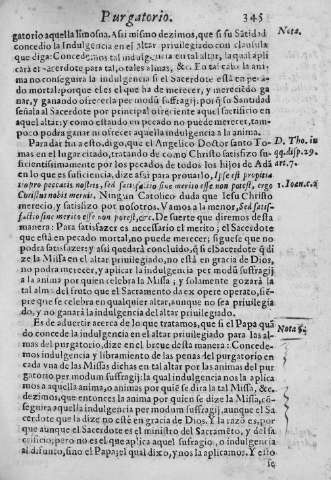 Purgatorio. 345
gatorio aquella limosna. Asi mismo dezimos, que si su Sãtidad
concedio la Indulgencia en el altar priuilegiado con clausula
que diga: Concedemos tal indulgencia en tal altar, la qual apli
cará el sacerdote para tal, o tales almas, &c. En tal cabo la ani
ma no conseguira la indulgencia si el Sacerdote está en peca-
do mortal: porque el es el que ha de merecer, y mereciẽdo ga
nar, y ganando ofrecerla per modũ suffragij, porq̃ su Santidad
señala al Sacerdote por principal oferiente aquel sacrificio en
aquel altar; y como estando en pecado no puede merecer, tam-
poco podra ganar ni ofrecer aquella indulgencia a la anima.
Para dar fin a esto, digo, que el Angelico Doctor santo To
mas en el lugar citado, tratando de como Christo satisfizo su-
ficientissimamente por los pecados de todos los hijos de Adã
en lo que es suficiencia, dize asi para prouarlo, Ipse est propitia
tio pro peccatis nostris, sed satisfactio sine merito esse non potest, ergo
Christus nobis meruit. Ningun Catolico duda que Iesu Christo
merecio, y satisfizo por nosotros. Vamos a la menor, Sed satis-
factio sine merito esse non potest, &c. De suerte que diremos desta
manera: Para satisfazer es necessario el merito; el Sacerdote
que está en pecado mortal, no puede merecer; siguese que no
podra satisfazer: y asi quedará concluido, q̃ si el Sacerdote q̃ di
ze la Missa en el altar priuilegiado, no está en gracia de Dios,
no podra merecer, y aplicar la indulgencia per modũ suffragij
a la anima por quien celebra la Missa; y solamente gozará la
tal alma del fruto que el Sacramento da ex opere operato, siẽ-
pre que se celebra en qualquier altar, aunque no sea priuilegia
do, y no ganará la indulgencia del altar priuilegiado.
Es de aduertir acerca de lo que tratamos, que si el Papa quã
do concede la indulgencia en el altar priuilegiado para las al-
mas del purgatorio, dize en el breue desta manera: Concede-
mos indulgencia y libramiento de las penas del purgatorio en
cada vna de las Missas dichas en tal altar por las animas del pur
gatorio per modum suffragij: la qual indulgencia nos la aplica
mos a aquella anima, o animas por quiẽ se dira la tal Missa, &c.
dezimos, que entonces la anima por quien se dize la Missa, cõ-
seguira aquella indulgencia per modum suffragij, aunque el Sa
cerdote que la dize no esté en gracia de Dios. Y la razõ es, por
que aunque el Sacerdote es el ministro del Sacramẽto, y del sa
crificio; pero no es el que aplica el sufragio, o indulgencia
al difunto, sino el Papa, el qual dixo, y nos la aplicamos. Y esto
se
Nota.
D. Tho. in
qq. disp. 29.
art. 7.
1. Ioan. c. 2
Nota